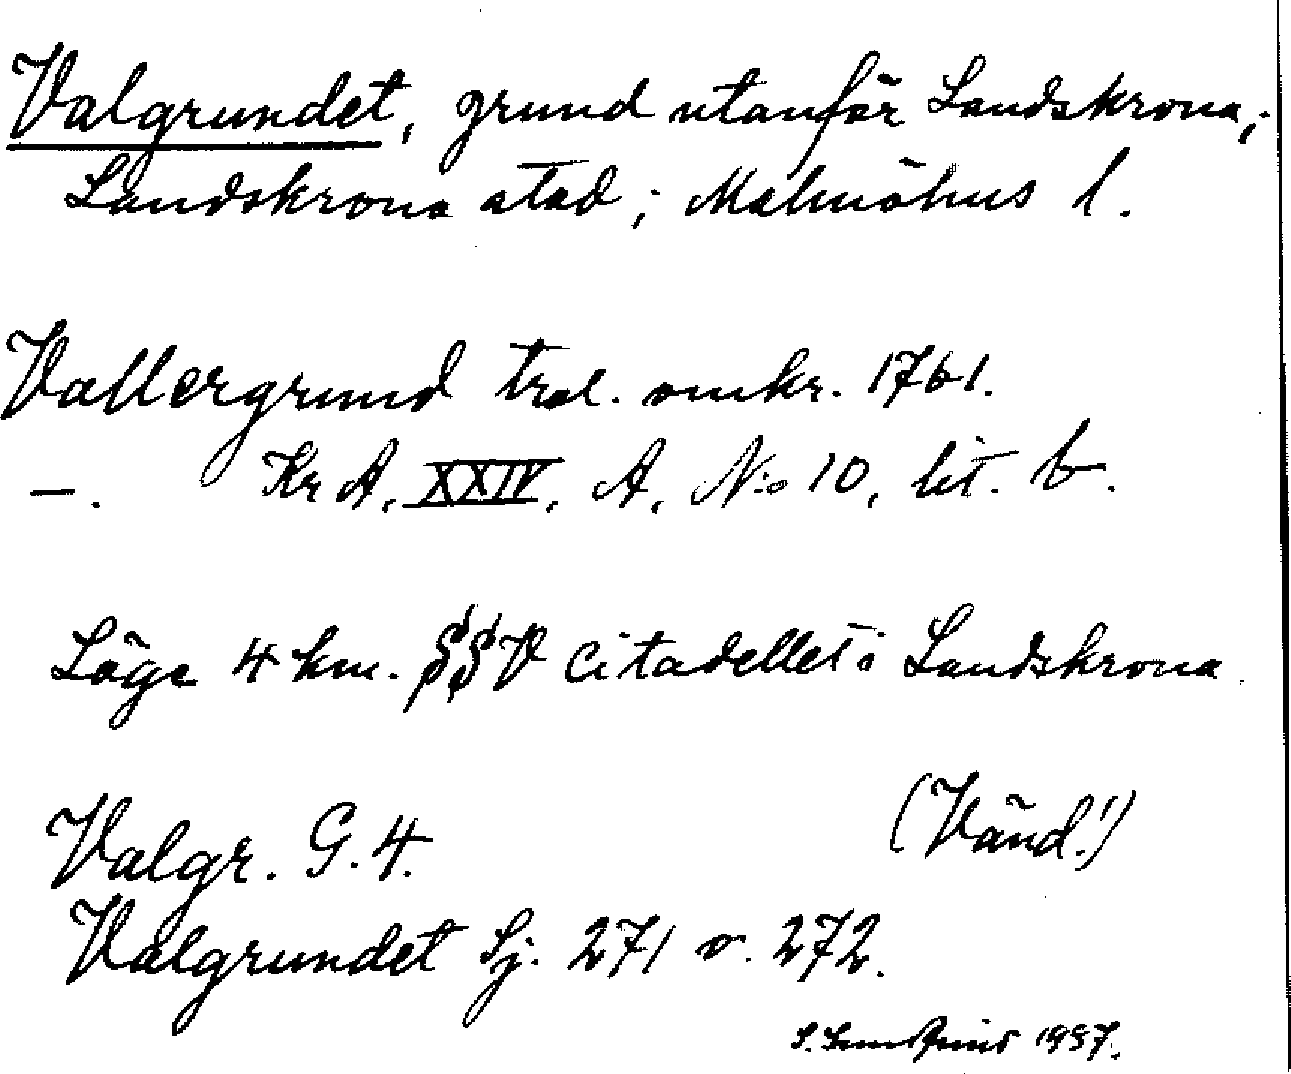 Valgrundet, grund utanför Landskrona;
Landskrona stad; Malmöhus l.
Vallergrund trol. omkr. 1761.
—. KrA, XXIV, A, N:o 10, lit. b.
Läge 4 km. SSV citadellet i Landskrona.
(Vänd!)
Valgr. G. 4.
Valgrundet Sj. 271 o. 272.
1937.